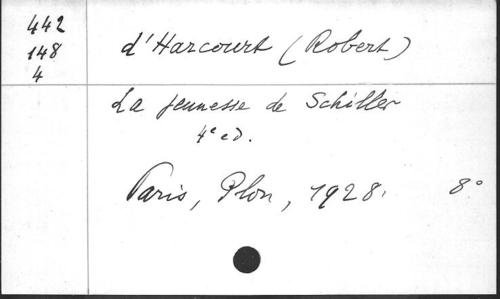 442
148
4
d'Harcourt (Robert)
La jeunesse de Schiller
4e ed.
Paris, Plon, 1928. 8°